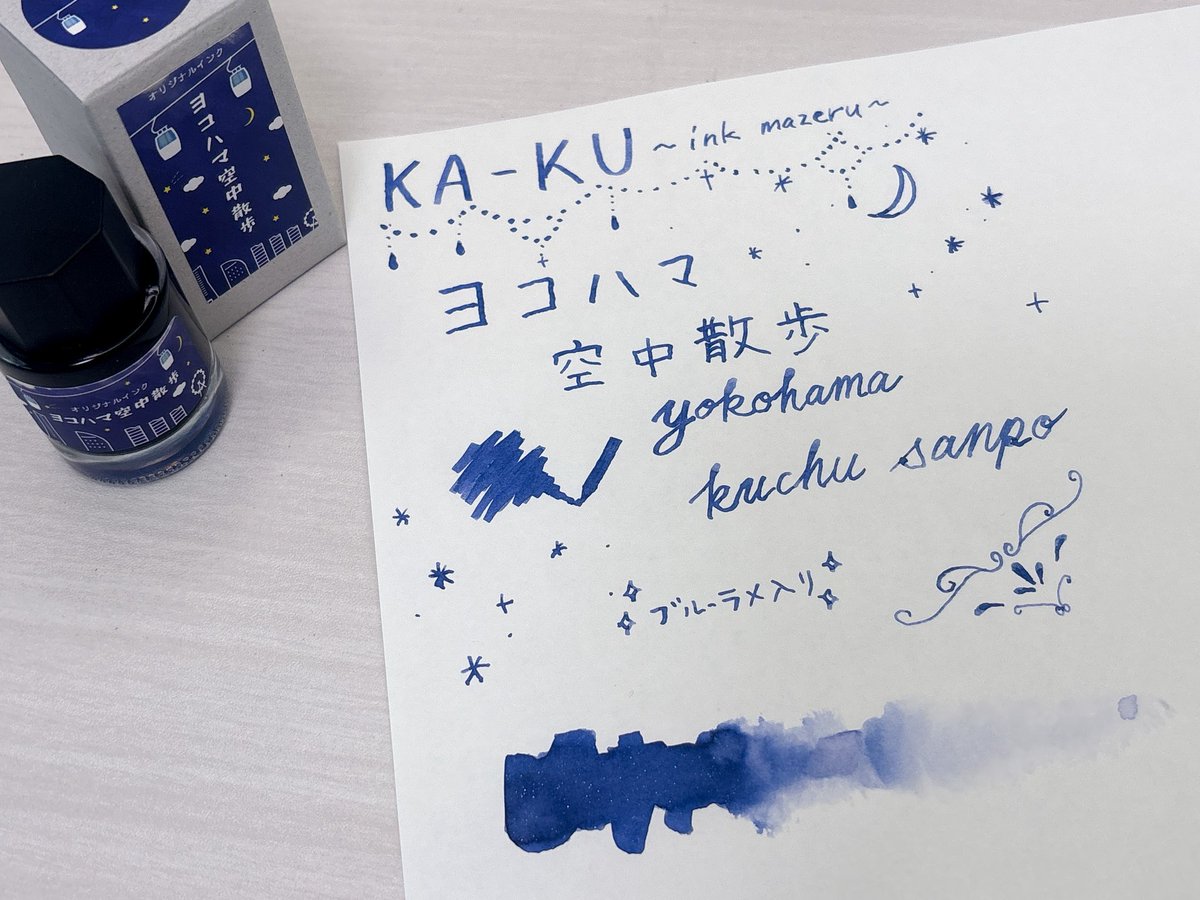 オリジナルインク
ヨコハマ空中散歩
オリジナルインク
ヨコハマ空中散歩
KA-KU ~ink mazeru~
ヨコハマ
空中散歩
yokohama
kuchu sanpo
ブルーラメ入り